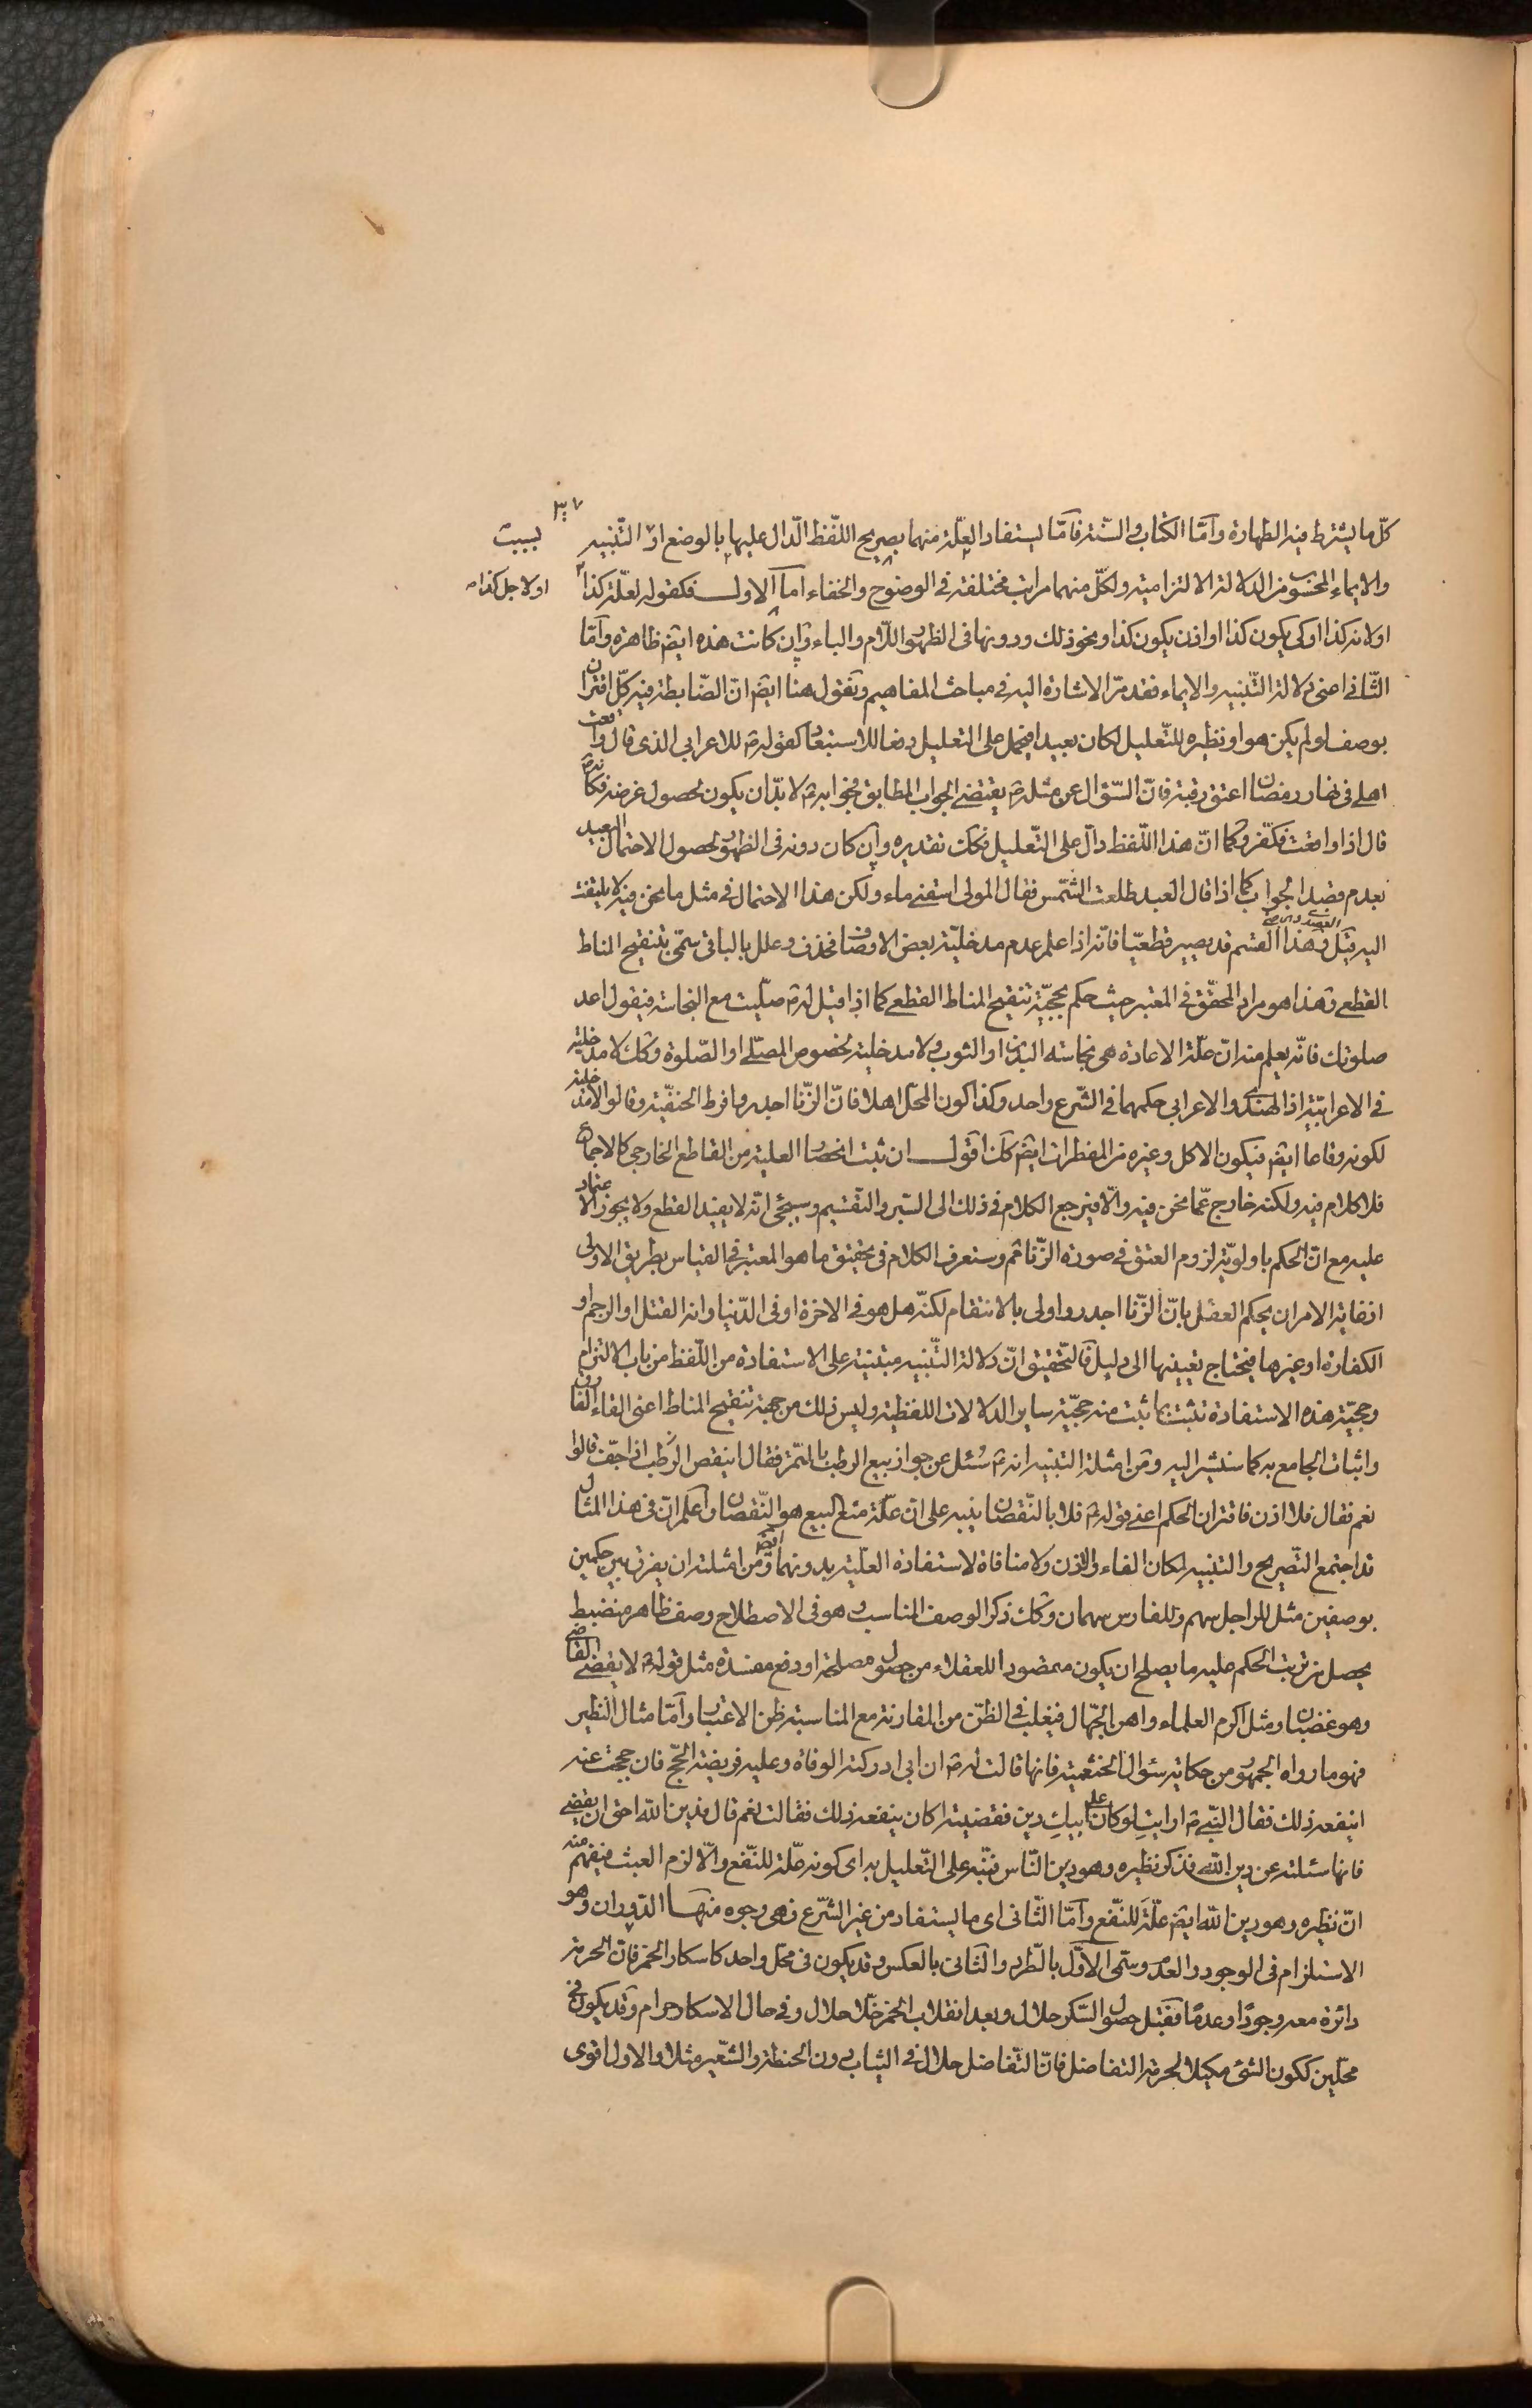 كلّ ما يشترط فيه الطهارة وأمّا الكتاب والسّنة فامّا يستفاد العلّة منهما بصريح اللّفظ الدّال عليها بالوضع او التّنبيه
بسبب
والايماء المحسوب من الدلالة الالتزامية ولكلّ منهما مراتب مختلفة فى الوضوح والخفاء اما الاول فكقوله لعلّة كذا
او لاجل كذا
او لانه كذا او كى يكون كذا او اذن يكون كذا ونحو ذلك ودونها فى الظهور اللّام والباء وان كانت هذه ايض ظاهرة وأمّا
الثّانى اعنى دلالة التّنبيه والايماء فقد مرّ الاشارة اليه فى مباحث المفاهيم ونقول هنا ايض انّ الضّابطة فيه كلّ اقتران
بوصف لو لم يكن هو او نظيره للتّعليل لكان بعيدا فيحمل على التعليل دفعا للاستبعاد كقوله ص للاعرابى الذى قال واقعت
اهلى فى نهار رمضان اعتق رقبة فانّ السّؤال عن مثله ص يقتضى الجواب المطابق فجوابه ص لا بدّ ان يكون لحصول غرضه فكانه ص
قال اذا واقعت فكفّر وكما انّ هذا اللّفظ دالّ على التّعليل فكك تقديره وان كان دونه فى الظهور لحصول الاحتمال البعيد
بعدم قصد الجواب كما اذا قال العبد طلعت الشّمس فقال المولى اسقنى ماء ولكن هذا الاحتمال فى مثل ما نحن فيه لا يلتفت
اليه قيل وهذا القسم قد يصير قطعيّا فانّه اذا علم عدم مدخليّة بعض الاوصاف فحذف وعلل بالباقى سمّى بتنقيح المناط
القطعى وهذا هو مراد المحقّق فى المعتبر حيث حكم بحجّيّة تنقيح المناط القطعى كما اذا قيل له ص صلّيت مع النجاسة فيقول اعد
صلوتك فانّه يعلم منه انّ علّة الاعادة هى نجاسة البدن او الثوب ولا مدخلية لخصوص المصلّى او الصّلوة وكك لا مدخلية
فى الاعرابيّة اذ الهندى والاعرابى حكمهما فى الشّرع واحد وكذا كون المحلّ اهلا فانّ الزّنا اجدر وافرط الحنفيّة وقالوا لا مدخلية
لكونه وقاعا ايض فيكون الاكل وغيره من المفطرات ايض كك اقول ان ثبت انحصار العلية من القاطع الخارجى كالاجماع
فلا كلام فيه ولكنه خارج عمّا نحن فيه والّا فيرجع الكلام فى ذلك الى السّبر والتّقسيم وسيجئ انّه لا يفيد القطع ولا يجوز الاعتماد
عليه مع انّ الحكم باولويّة لزوم العتق فى صورة الزّنا ثم وستعرف الكلام فى تحقيق ما هو المعتبر فى القياس بطريق الاولى
اذ غاية الامر ان يحكم العقل بانّ الزّنا اجدر واولى بالانتقام لكنّه هل هو فى الاخرة او فى الدّنيا وانه القتل او الرجم او
الكفارة او غيرها فيحتاج تعيينها الى دليل فالتّحقيق انّ دلالة التّنبيه مبتنية على الاستفادة من اللّفظ من باب الالتزام
وحجيّة هذه الاستفادة تثبت بما ثبت منه حجيّة ساير الدلالات اللفظية وليس ذلك من جهة تنقيح المناط اعنى القاء الفارق
واثبات الجامع به كما سنشير اليه ومن امثلة التنبيه انه ص سُئل عن جواز بيع الرطب بالتّمر فقال اينقص الرّطب اذا جفّ قالوا
نعم فقال فلا اذن فاقتران الحكم اعنى قوله ص فلا بالنّقصان ينبه على انّ علّة منع البيع هو النّقصان واعلم انّ فى هذا المثال
قد اجتمع التّصريح والتنبيه لمكان الفاء واذن ولا منافاة لاستفادة العلّية بدونهما ايض ومن امثلته ان يفرق بين حكمين
بوصفين مثل للراجل سهم وللفارس سهمان وكك ذكر الوصف المناسب وهو فى الاصطلاح وصف ظاهر منضبط
يحصل من ترتيب الحكم عليه ما يصلح ان يكون مقصودا للعقلاء من حصول مصلحة او دفع مفسدة مثل قوله ص لا يقضى القاضى
وهو غضبان ومثل اكرم العلماء واهن الجهّال فيغلب فى الظّن من المقارنة مع المناسبة ظن الاعتبار وأمّا مثال النظير
فهو ما رواه الجمهور من حكاية سئوال الخثعمية فانها قالت له ص ان ابى ادركته الوفاة وعليه فريضة الحجّ فان حججت عنه
اينفعه ذلك فقال النّبى ص ارايتِ لو كان على ابيكِ دين فقضيته اكان ينفعه ذلك فقالت نعم قال فدين الله احق ان يقضى
فانها سئلته عن دين الله فذكر نظيره وهو دين النّاس فنبّه على التّعليل به اى كونه علّة للنّفع والّا لزم العبث فيفهم منه
انّ نظيره وهو دين الله ايض علّة للنّفع وأمّا الثّانى اى ما يستفاد من غير الشّرع فهى وجوه منها الدّوران وهو
الاستلزام فى الوجود والعدم وسمّى الاوّل بالطّرد والثّانى بالعكس وقد يكون فى محلّ واحد كاسكار الخمر فانّ الحرمة
دائرة معه وجودًا وعدمًا فقبل حصول السّكر حلال وبعد انقلاب الخمر خلّا حلال وفى حال الاسكار حرام وقد يكون فى
محلّين ككون الشئ مكيلا لحرمة التفاضل فانّ التّفاضل حلال فى الثياب دون الحنطة والشّعير مثلا والاول اقوى